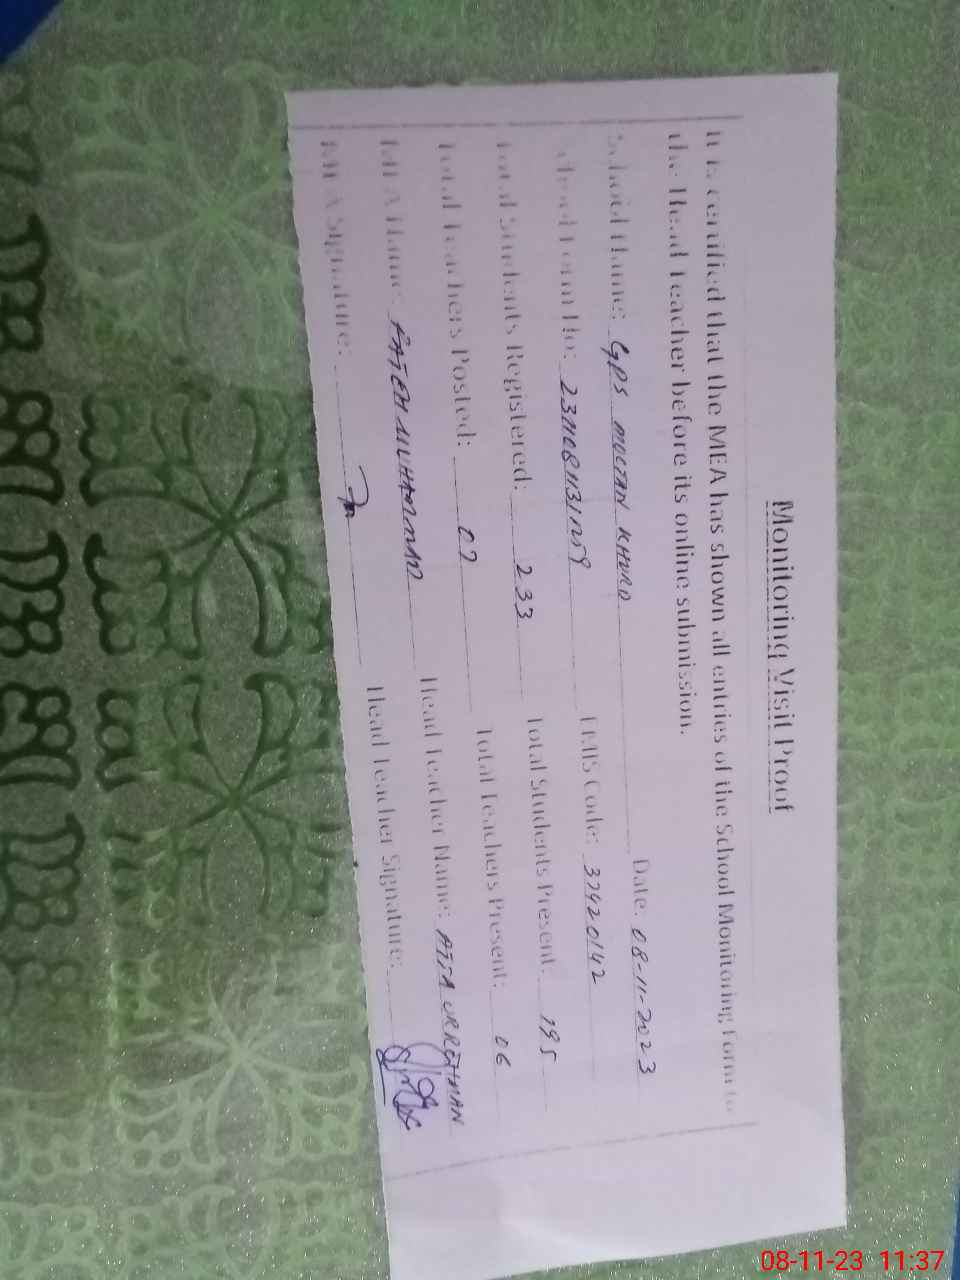 Monitoring Visit Proof
It is certified that the MEA has shown all entries of the School Monitoring Form to
the Head Teacher before its online submission.
School Name: GPS MOCTAN KHURD Date: 08-11-2023
School Form No: EMIS Code: 37420142
Total Students Registered: 233 Total Students Present: 195
Total Teachers Posted: 07 Total Teachers Present: 06
MEA Name: FATEH MUHAMMAD Head Teacher Name: ATTA UR REHMAN
MEA Signature: Head Teacher Signature:
08-11-23 11:37